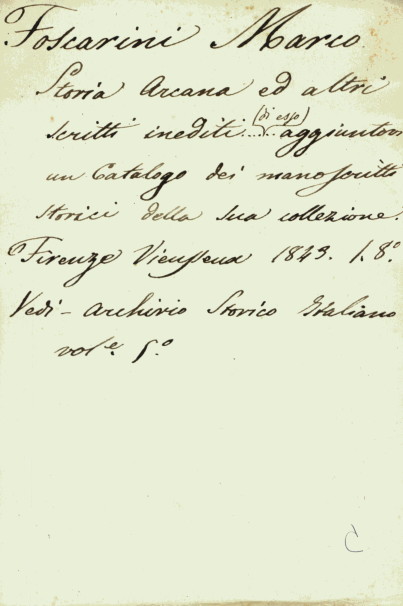 Foscarini Marco
Storia Arcana ed altri
scritti inediti ..(di esso).. aggiuntovi
un Catalogo dei manoscritti
storici della sua collezione.
Firenze Vieusseux 1843. 1. 8.º
Vedi - Archivio Storico Italiano
vol.e 5.º
C